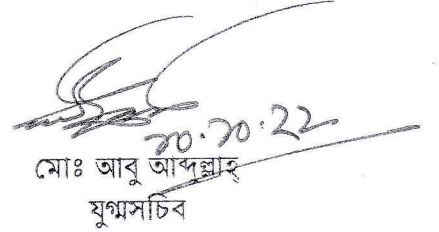 ১০.১০.২২
মোঃ আবু আব্দুল্লাহ্
যুগ্মসচিব